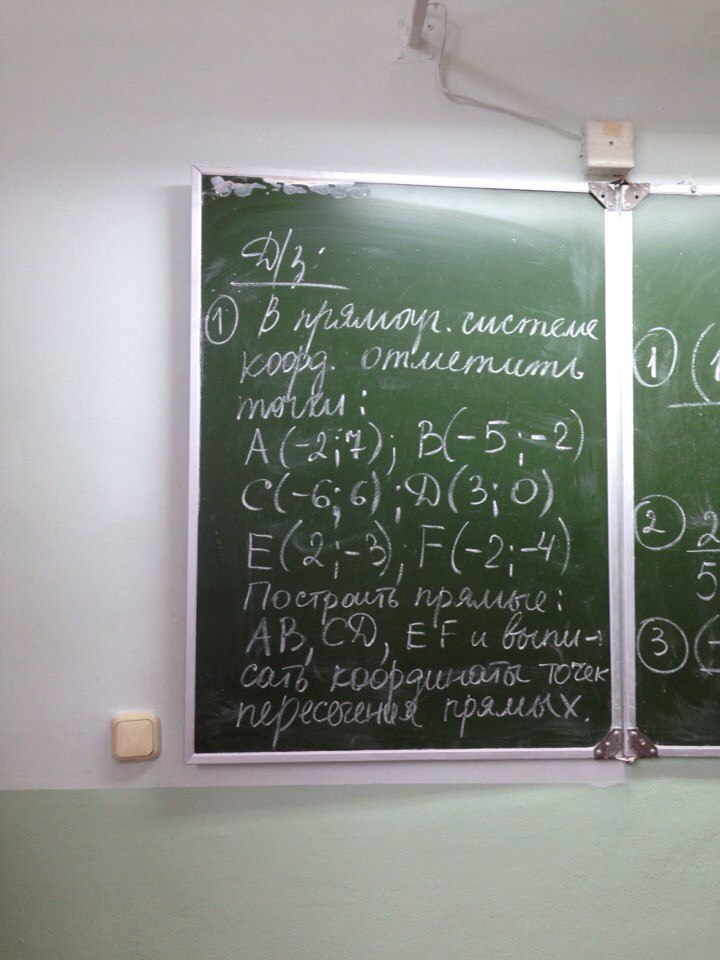 Д/з:
① В прямоуг. системе
коорд. отметить
точки:
А(-2;7); В(-5;-2)
С(-6;6); D(3;0)
Е(2;-3); F(-2;-4)
Построить прямые:
АВ, СD, EF и выпи-
сать координаты точек
пересечения прямых.
① (1
② 2
5
③ (-